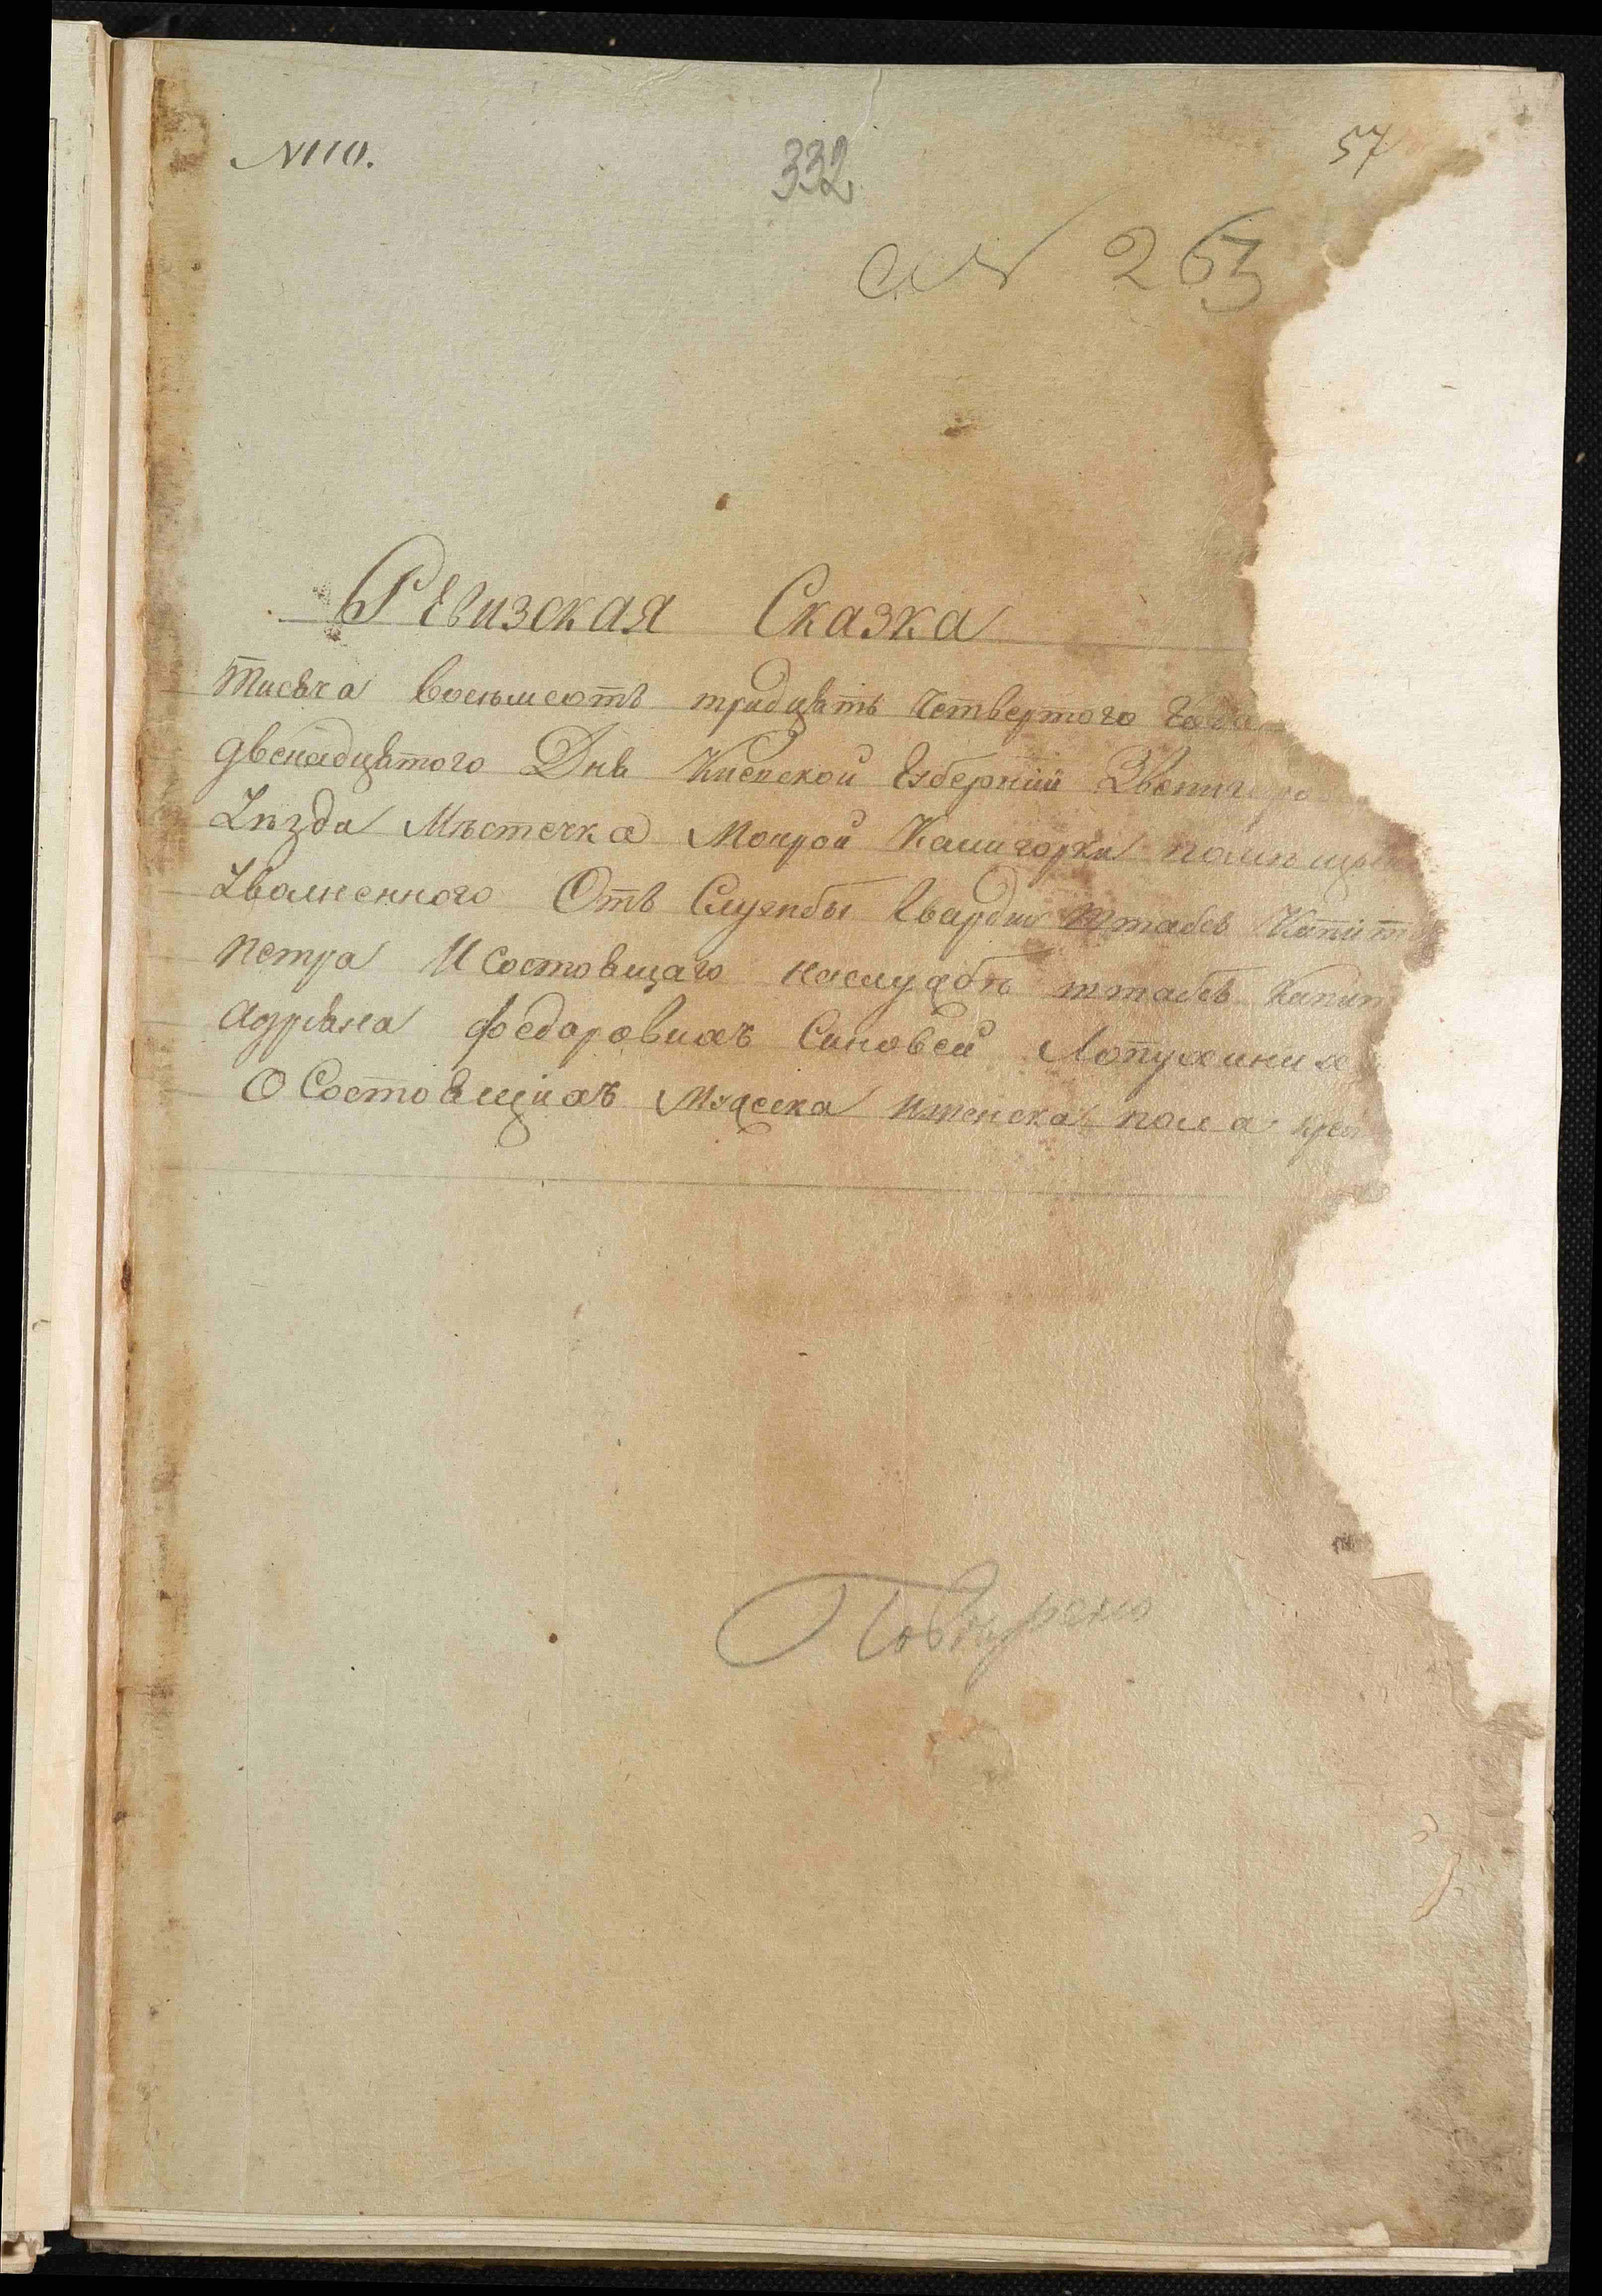 N110.
332
57
263
Ревизская Сказка
Тисяча восемьсотъ тридцять Четвертого Года
двенадцятого Дня Киевской Губернии Звениг
Уѣзда Мѣстечка Мокрой Калигорки помѣщи
Уволненного Отъ Службы Гвардии Штабсъ Капит
Петра И состоящаго наслужбѣ штабсъ Капит
Адрияна Федоровихъ Синовей Лопухиних
О Состоящихъ Мужеска иженска пола крес
Повѣрено